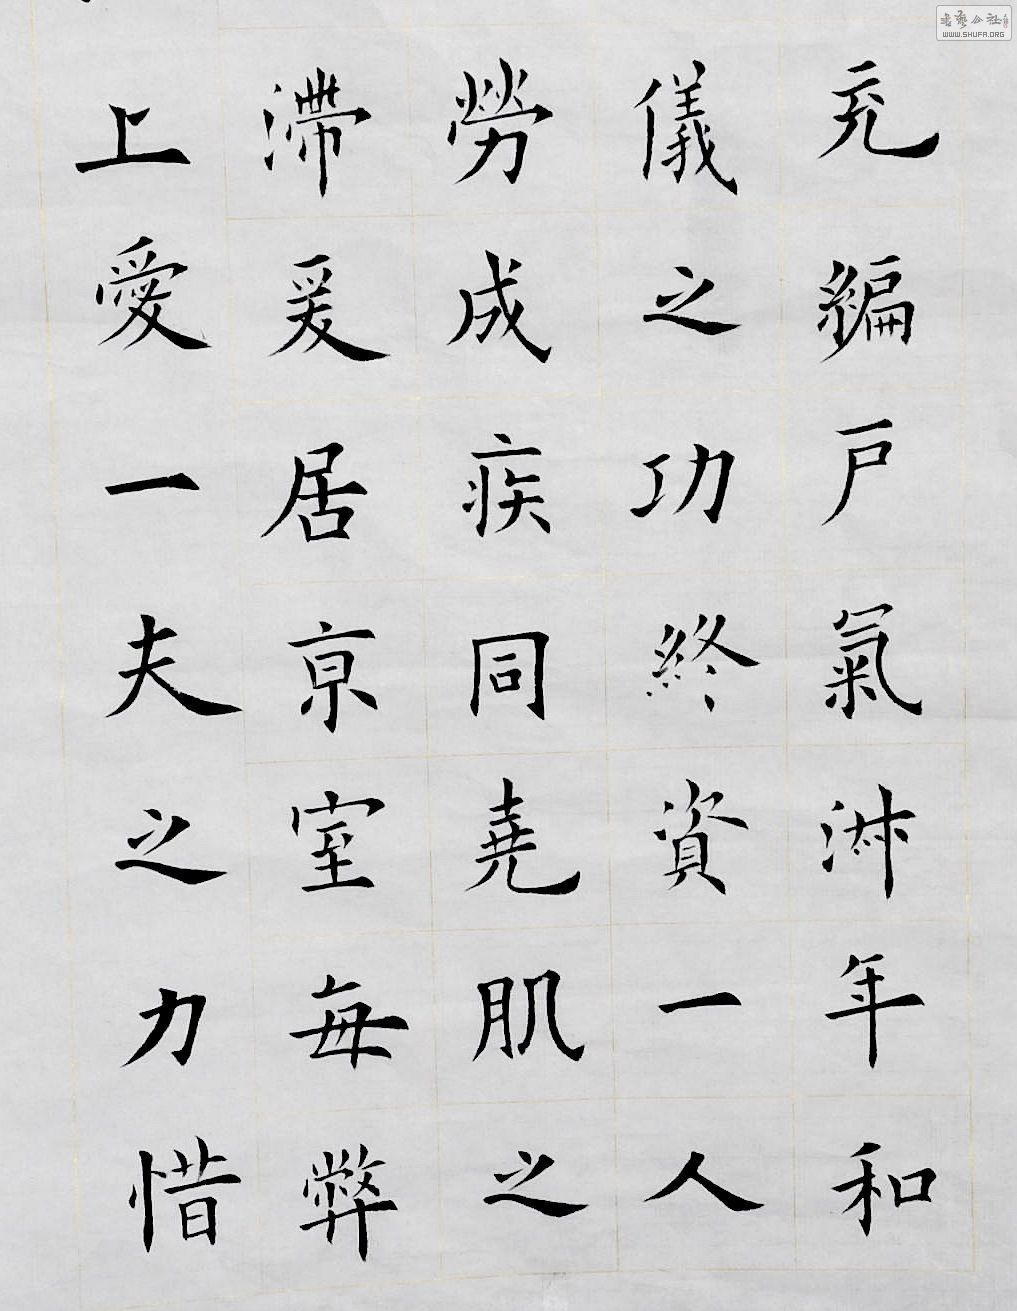 充編戶氣淑年和
儀之功終資一人
勞成疾同堯肌之
滯爰居亰室每弊
上愛一夫之力惜
WWW.SHUFA.ORG